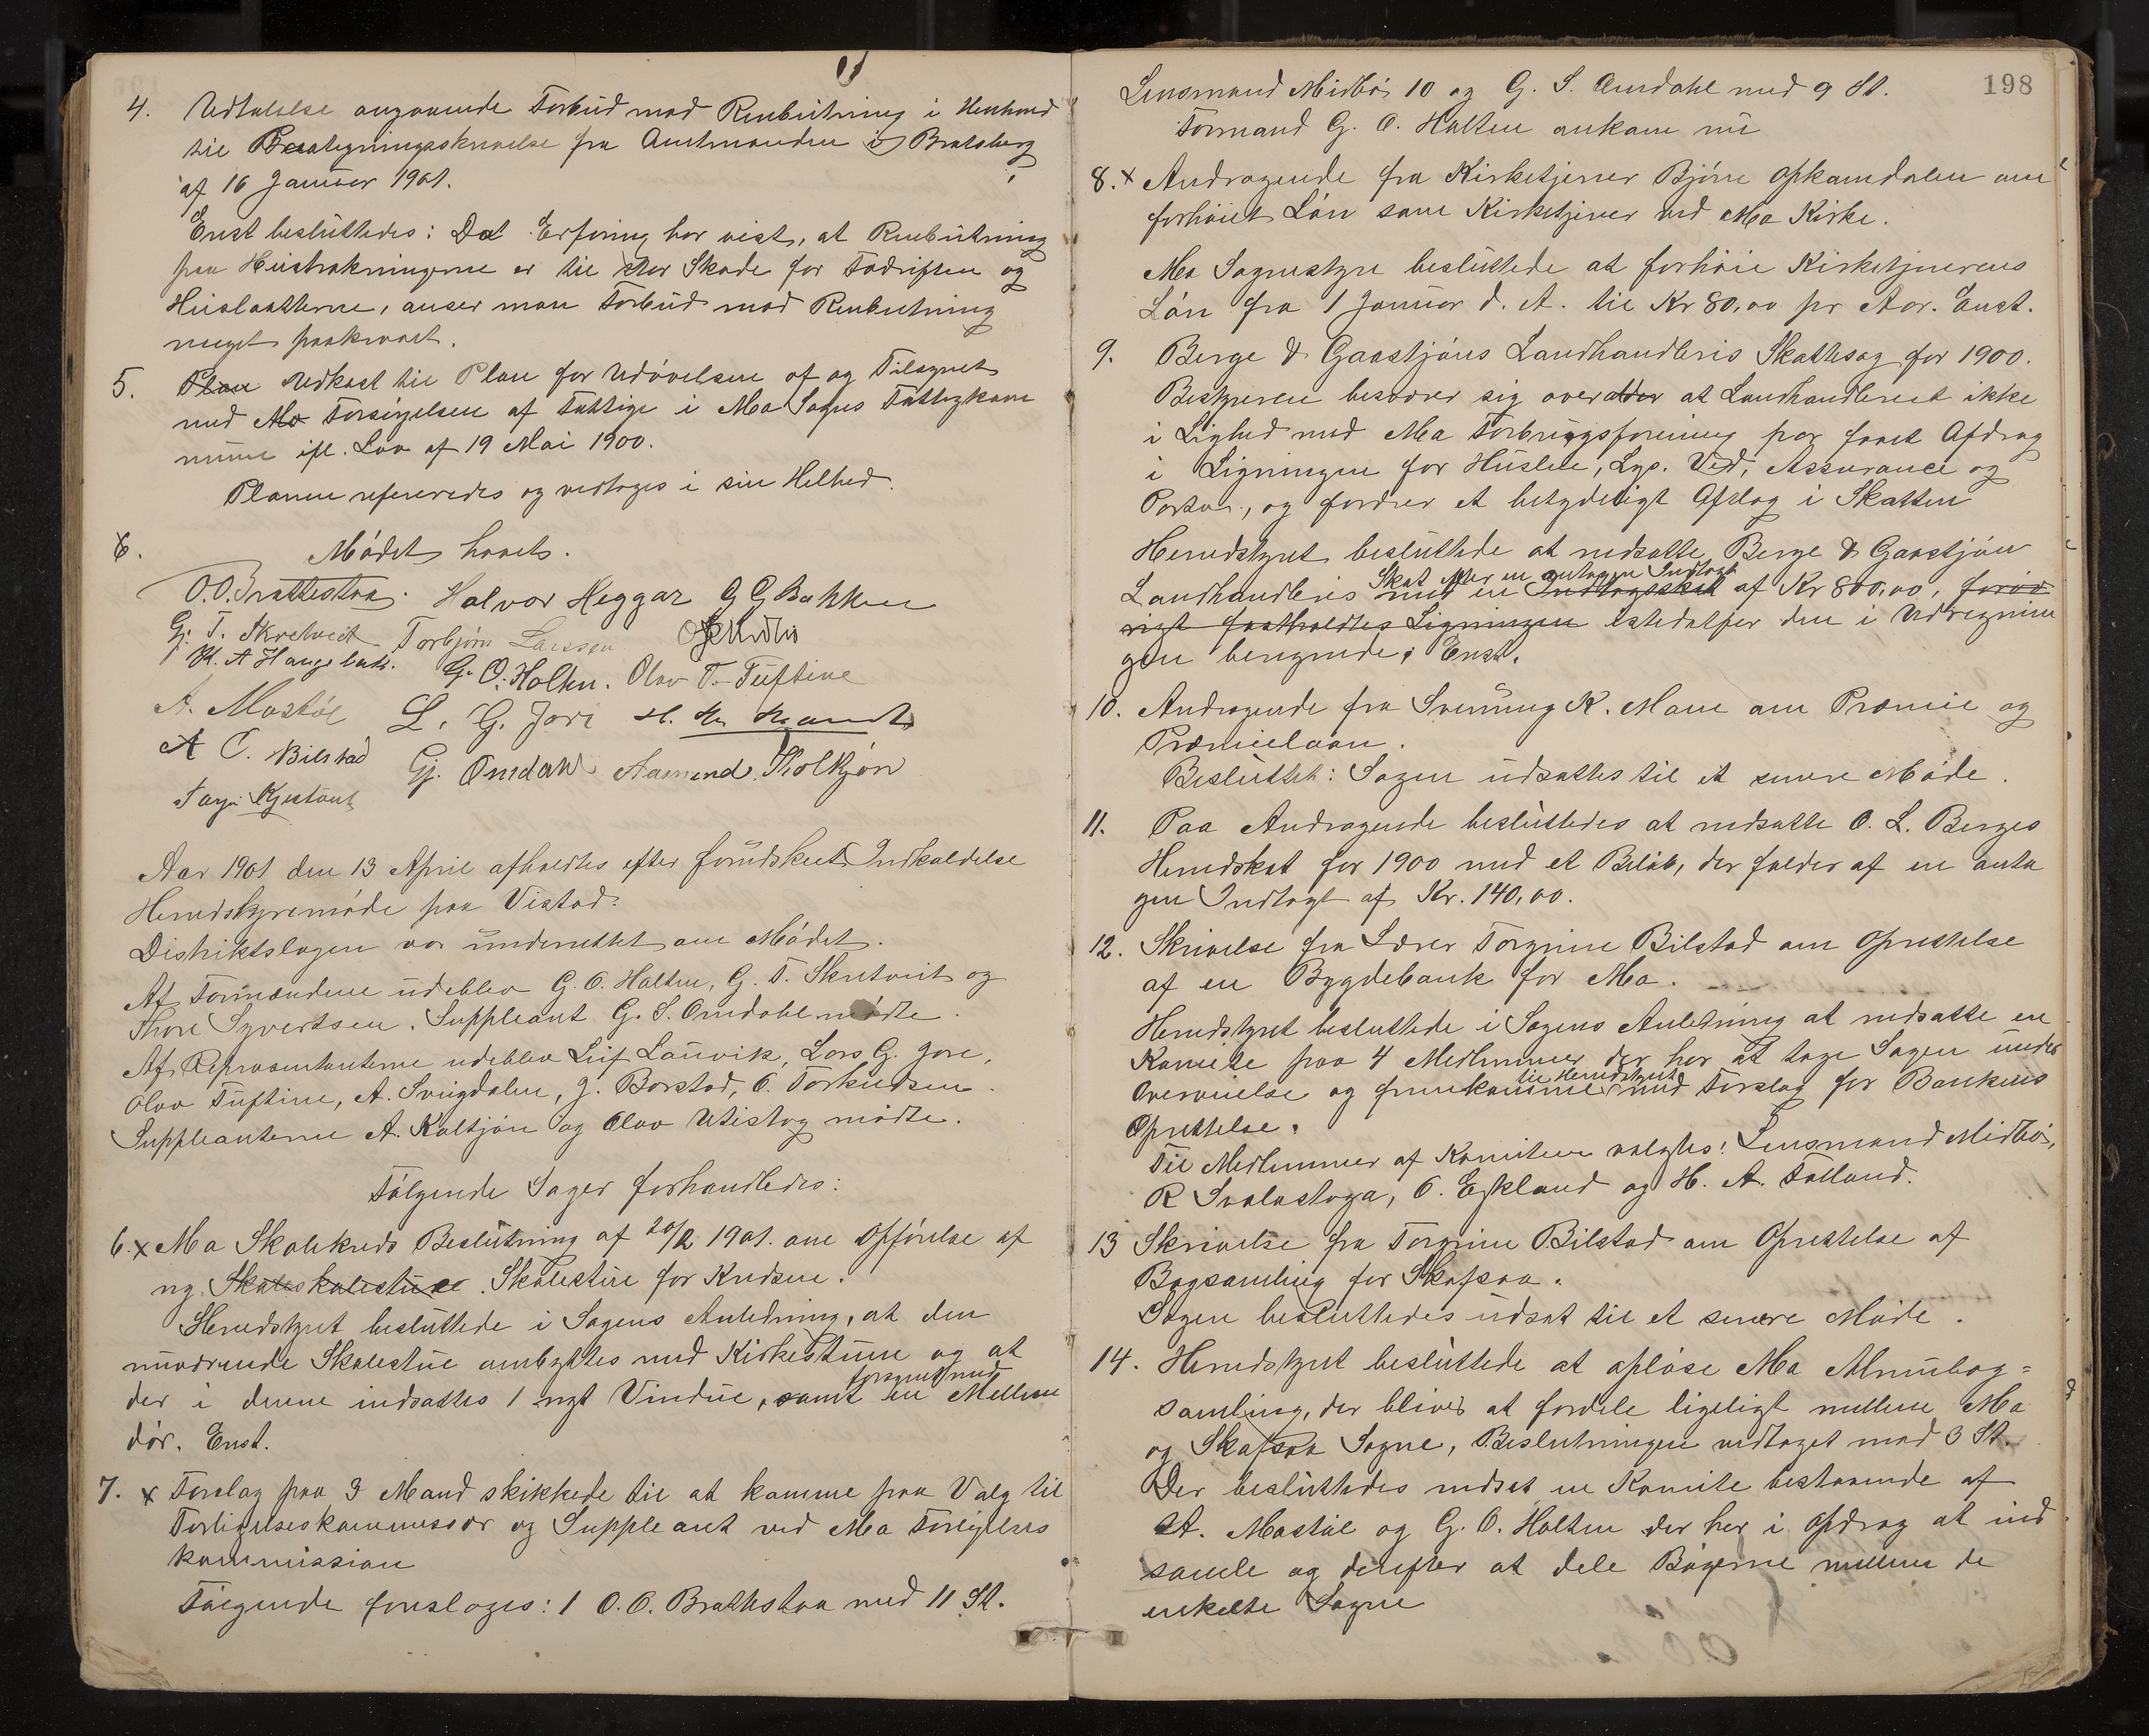 4. Udtalelse angaaende Forbud mod Renbeitning i Henhold
til Paategningsskrivelse fra Amtmanden i Bratsberg
af 16 Januar 1901.
Enst besluttedes: Da Erfaring har vist, at Renbeitning
paa Heistrækningerne er til stor Skade for Fædriften og
Heislaatterne, anser man Forbud mod Renbeitning
meget paakrævet.
5. Plan Udkast til Plan for Udøvelsen af og Tilsynet
med Mo Forsørgelsen af Fattige i Mo Sogns Fattigkom
mune ifl. Lov af 19 Mai 1900.
Planen refereredes og vedtoges i sin Helhed.
6. Mødet hævet.
O.O. Brattestaa. Halvor Heggar G G Bakken
G. T. Skretveit Torbjørn Laussen
H. A Haugebak. G. O. Holten. Olav T. Tuftine
A. Mostøl L. G. Jore
A O. Bilstad Gj. Omdahl Aamund Tholtjøn
Aar 1901 den 13 April afholdtes efter forudskeet Indkaldelse
Herredstyremøde paa Vistad.
Distriktslægen var underrettet om Mødet.
Af Formændene udeblev G. O. Holten, G. T. Skretveit og
Thore Syvertsen. Suppleant G. S. Omdahl mødte.
Af Repræsentanterne udeblev Leif Lauvik, Lars G. Jore,
Olav Tuftine, A. Svingdalen, J. Borstad, O. Torkildsen.
Suppleanterne A. Kaltjøn og Olav Utistog mødte.
Følgende Sager forhandledes:
6. x Mo Skolekreds Beslutning af 20/2 1901. om Opførelse af
ny Skoleskolestue. Skolestue for Kredsen.
Herredstyret besluttede i Sagens Anledning, at den
nuværende Skolestue ombyttes med Kirkestuen og at
der i denne indsættes 1 nyt Vindue, samt forsynet med en Mellem
dør. Enst.
7. x Forslag paa 3 Mænd skikkede til at komme paa Valg til
Forligelseskommissær og Suppleant ved Mo Forligelses
kommission
Følgende foresloges: 1 O. O. Brattestaa med 11 St.
198
Lensmand Midbø 10 og G. S. Omdahl med 9 St.
Formand G. O. Holten ankom nu
8. x Andragende fra Kirketjener Bjørn Opkamdalen om
forhøiet Løn som Kirketjener ved Mo Kirke.
Mo Sognestyre besluttede at forhøie Kirketjenerens
Løn fra 1 Januar d. A. til Kr 80,00 pr Aar. Enst.
9. Berge & Gaastjøns Landhandleris Skattesag for 1900.
Bestyreren besværer sig over at Landhandleriet ikke
i Lighed med Mo Forbrugsforening har faaet Afdrag
i Ligningen for Husleie, Lys. Ved, Assurance og
Porto, og fordrer et betydeligt Afslag i Skatten
Herredstyret besluttede at nedsætte Berge & Gaastjøn
Landhandleris Skat efter en antagen Indtægt med en Indtægsskat af Kr 800,00, forøv
rigt fastholdtes Ligningen istedetfor den i Udregnin
gen benyttede. Enst.
10. Andragende fra Svenung K. Moen om Præmie og
Præmielaan.
Besluttet: Sagen udsættes til et senere Møde.
11. Paa Andragende besluttedes at nedsætte O. L. Berges
Herredskat for 1900 med et Beløb, der falder af en anta
gen Indtægt af Kr. 140,00.
12. Skrivelse fra Lærer Torgrim Bilstad om Oprettelse
af en Bygdebank for Mo.
Herredstyret besluttede i Sagens Anledning at nedsætte en
Komite paa 4 Medlemmer der har at tage Sagen under
Overveielse og fremkomme til Herredstyret med Forslag for Bankens
Oprettelse.
Til Medlemmer af Komiteen valgtes: Lensmand Midbø,
R Svalastoga, O. Eskland og H. A. Følland.
13 Skrivelse fra Torgrim Bilstad om Oprettelse af
Bogsamling for Skafsaa.
Sagen besluttedes udsat til et senere Møde.
14. Herredstyret besluttede at opløse Mo Almuebog=
samling, der bliver at fordele ligeligt mellem Mo
og Skafsaa Sogne, Beslutningen vedtaget mod 3 St.
Der besluttedes nedsat en Komite bestaaende af
A. Mostøl og G. O. Holten der har i Opdrag at ind
samle og derefter at dele Bøgerne mellem de
enkelte Sogne